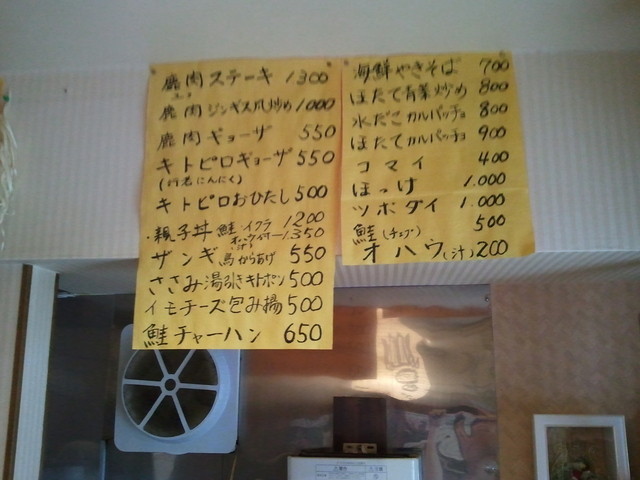 鹿肉ステーキ 1300
ユク
鹿肉ジンギス風炒め 1000
鹿肉ギョーザ 550
キトピロギョーザ 550
(行者にんにく)
キトピロおひたし 500
・親子丼 鮭 イクラ 1200
1350
ザンギ 鳥からあげ 550
ささみ湯引きキトポン 500
イモチーズ包み揚 500
鮭チャーハン 650
海鮮やきそば 700
ほたて青菜炒め 800
水だこカルパッチョ 800
ほたてカルパッチョ 900
コマイ 400
ほっけ 1.000
ツボダイ 1.000
鮭(チェプ) 500
オハウ(汁) 200